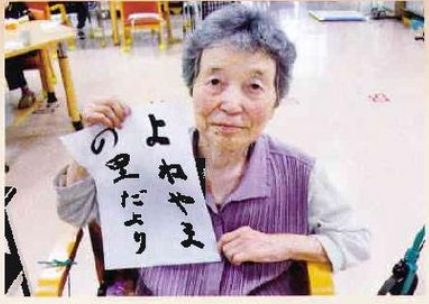 よねやま
の里だより